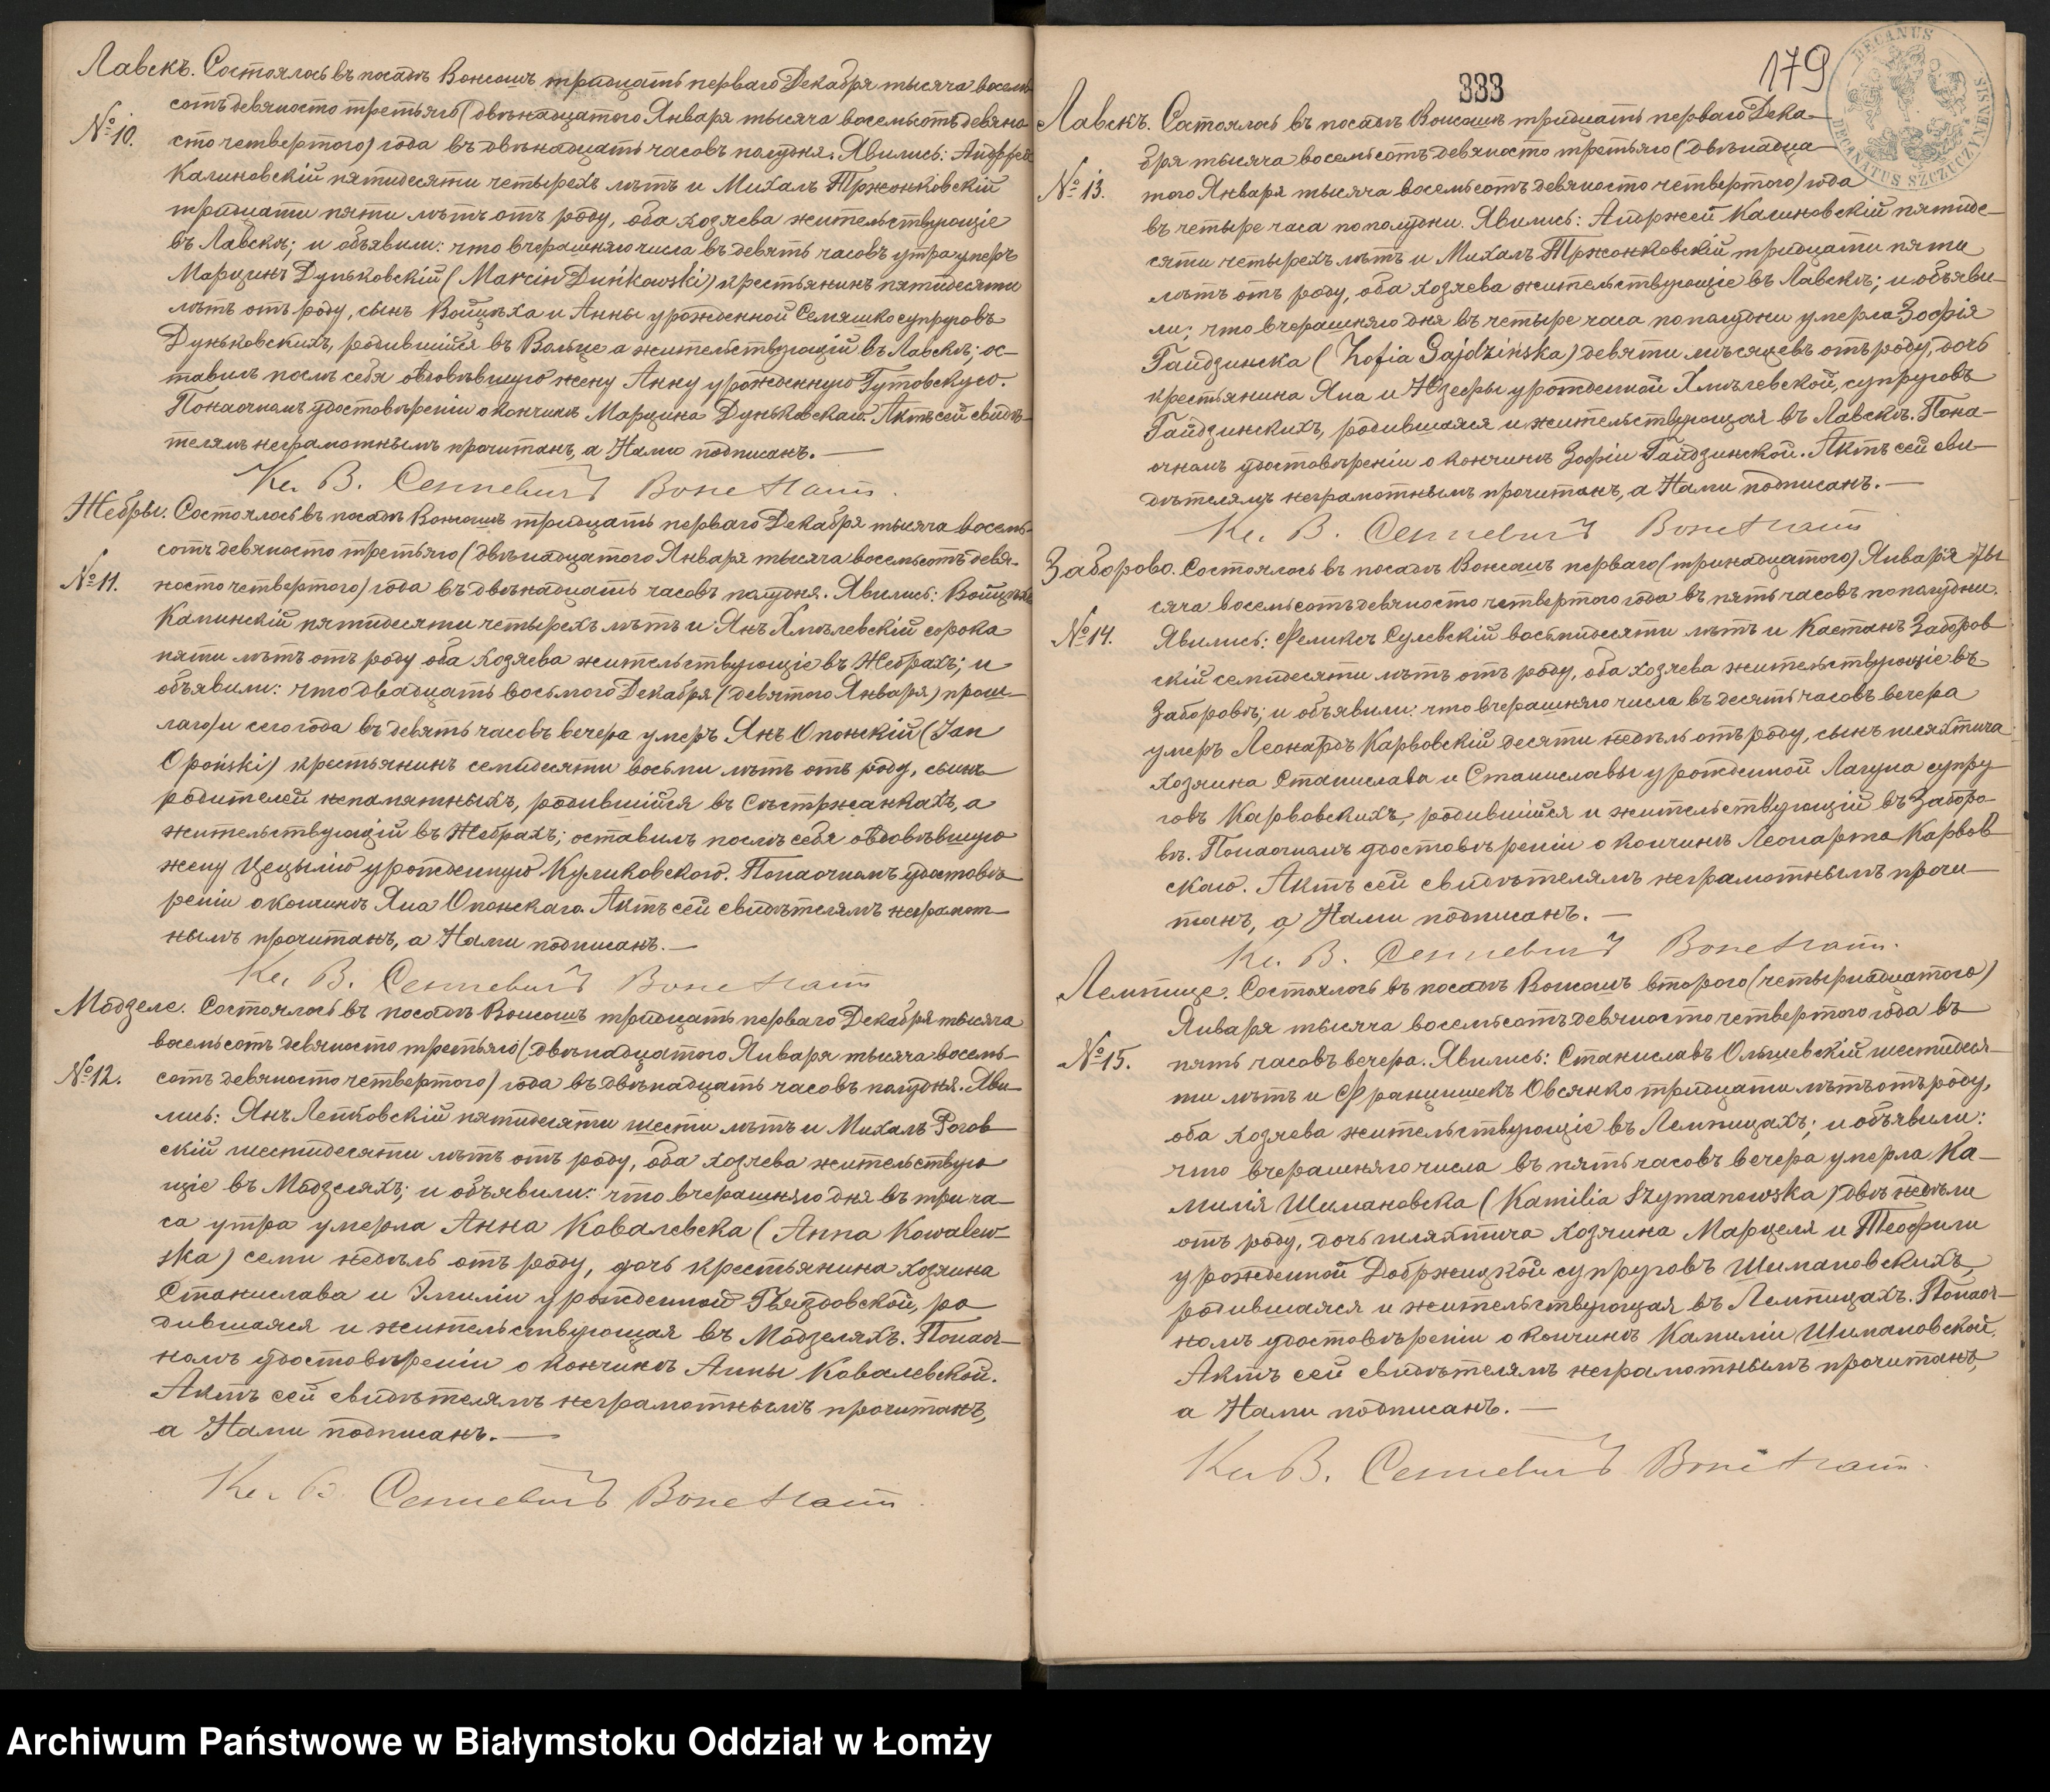 Лавскъ. Состоялось въ посадѣ Вонсошѣ тридцать перваго Декабря тысяча восемь
сотъ девяносто третьяго (двѣнадцатого Января тысяча восемьсотъ девяно
№ 10. сто четвертого) года въ двѣнадцать часовъ полудня. Явились: Андржей
Калиновскій пятидесяти четырехъ лѣтъ и Михалъ Тржонковскій
тридцати пяти лѣтъ отъ роду, оба хозяева жительствующіе
въ Лавскѣ; и объявили: что вчерашняго числа въ девять часовъ утра умеръ
Марцинъ Дуньковскій (Marcin Duńkowski) крестьянинъ пятидесяти
лѣтъ отъ роду, сынъ Войцѣха и Анны урожденной Семяшко супруговъ
Дуньковскихъ, родившійся въ а жительствующій въ Лавскѣ; ос-
тавилъ послѣ себя овдовѣвшую жену Анну урожденную Гутовскую.
По наочномъ удостовѣреніи о кончинѣ Марцина Дуньковскаго. Актъ сей свидѣ-
телямъ неграмотнымъ прочитанъ, а Нами подписанъ. —
Кс. В.
Жебры. Состоялось въ посадѣ Вонсошѣ тридцать перваго Декабря тысяча восемь-
сотъ девяносто третьяго (двѣнадцатого Января тысяча восемьсотъ девя-
№ 11. носто четвертого) года въ двѣнадцать часовъ полудня. Явились: Войцѣхъ
Калинскій пятидесяти четырехъ лѣтъ и Янъ Хмѣлевскій сорока
пяти лѣтъ отъ роду оба хозяева жительствующіе въ Жебрахъ; и
объявили: что двадцать восьмого Декабря (девятого Января) прош-
лаго/и сего года въ девять часовъ вечера умеръ Янъ Опонскій (Jan
Opoński) крестьянинъ семидесяти восьми лѣтъ отъ роду, сынъ
родителей непамятныхъ, родившійся въ а
жительствующій въ Жебрахъ; оставилъ послѣ себя овдовѣвшую
жену Цецылію урожденную Куликовскою. По наочномъ удостовѣ
реніи о кончинѣ Яна Опонскаго. Актъ сей свидѣтелямъ неграмот-
нымъ прочитанъ, а Нами подписанъ. —
Кс. В.
Модзеле. Состоялось въ посадѣ Вонсошѣ тридцать перваго Декабря тысяча
восемьсотъ девяносто третьяго (двѣнадцатого Января тысяча восемь-
№ 12. сотъ девяносто четвертого) года въ двѣнадцать часовъ полудня. Яви-
лись: Янъ Лепковскій пятидесяти шести лѣтъ и Михалъ Рогов
скій шестидесяти лѣтъ отъ роду, оба хозяева жительствую
щіе въ Модзеляхъ; и объявили: что вчерашняго дня въ три ча-
са утра умерла Анна Ковалевска (Anna Kowalew-
ska) семи недѣль отъ роду, дочь крестьянина хозяина
Станислава и Эмиліи урожденной Гвяздовской, ро
дившаяся и жительствующая въ Модзеляхъ. По наоч-
номъ удостовѣреніи о кончинѣ Анны Ковалевской.
Актъ сей свидѣтелямъ неграмотнымъ прочитанъ,
а Нами подписанъ. —
Кс. В.
333
179
DECANUS DECANATUS SZCZUCZYNENSIS
Лавскъ. Состоялось въ посадѣ Вонсошѣ тридцать перваго Дека-
бря тысяча восемьсотъ девяносто третьяго (двѣнадца-
№ 13. того Января тысяча восемьсотъ девяносто четвертого) года
въ четыре часа пополудни. Явились: Анджей Калиновскій пятиде-
сяти четырехъ лѣтъ и Михалъ Тржонковскій тридцати пяти
лѣтъ отъ роду, оба хозяева жительствующіе въ Лавскѣ; и объяви-
ли; что вчерашняго дня въ четыре часа пополудни умерла Зофія
Гайдзинска (Zofia Gajdzińska) девяти мѣсяцевъ отъ роду, дочь
крестьянина Яна и Юзефы урожденной Хмѣлевской, супруговъ
Гайдзинскихъ, родившаяся и жительствующая въ Лавскѣ. По на-
очномъ удостовѣреніи о кончинѣ Зофіи Гайдзинской. Актъ сей сви-
дѣтелямъ неграмотнымъ прочитанъ, а Нами подписанъ. —
Кс. В.
Заборово. Состоялось въ посадѣ Вонсошѣ перваго (тринадцатого) Января ты
сяча восемьсотъ девяносто четвертого года въ пять часовъ пополудни.
№ 14. Явились: Феликсъ Сулевскій восьмидесяти лѣтъ и Каетанъ Заборов
скій семидесяти лѣтъ отъ роду, оба хозяева жительствующіе въ
Заборовѣ; и объявили: что вчерашняго числа въ десять часовъ вечера
умеръ Леонардъ Карвовскій десяти недѣль отъ роду, сынъ шляхтича
хозяина Станислава и Станиславы урожденной Лагуна супру
говъ Карвовскихъ, родившійся и жительствующій въ Заборо
вѣ. По наочномъ удостовѣреніи о кончинѣ Леонарта Карвов
скаго. Актъ сей свидѣтелямъ неграмотнымъ прочи-
танъ, а Нами подписанъ. —
Кс. В.
Лемпице. Состоялось въ посадѣ Вонсошѣ второго (четырнадцатого)
Января тысяча восемьсотъ девяносто четвертого года въ
№ 15. пять часовъ вечера. Явились: Станиславъ Ольшевскій шестидеся-
ти лѣтъ и Францишекъ Овсянко тридцати лѣтъ отъ роду,
оба хозяева жительствующіе въ Лемпицахъ; и объявили:
что вчерашняго числа въ пять часовъ вечера умерла Ка-
милія Шимановска (Kamilia Szymanowska) двѣ недѣли
отъ роду, дочь шляхтича хозяина Марцеля и Теофили
урожденной Добржицкой супруговъ Шимановскихъ,
родившаяся и жительствующая въ Лемпицахъ. По наоч-
номъ удостовѣреніи о кончинѣ Камиліи Шимановской.
Актъ сей свидѣтелямъ неграмотнымъ прочитанъ,
а Нами подписанъ. —
Кс. В.
Archiwum Państwowe w Białymstoku Oddział w Łomży